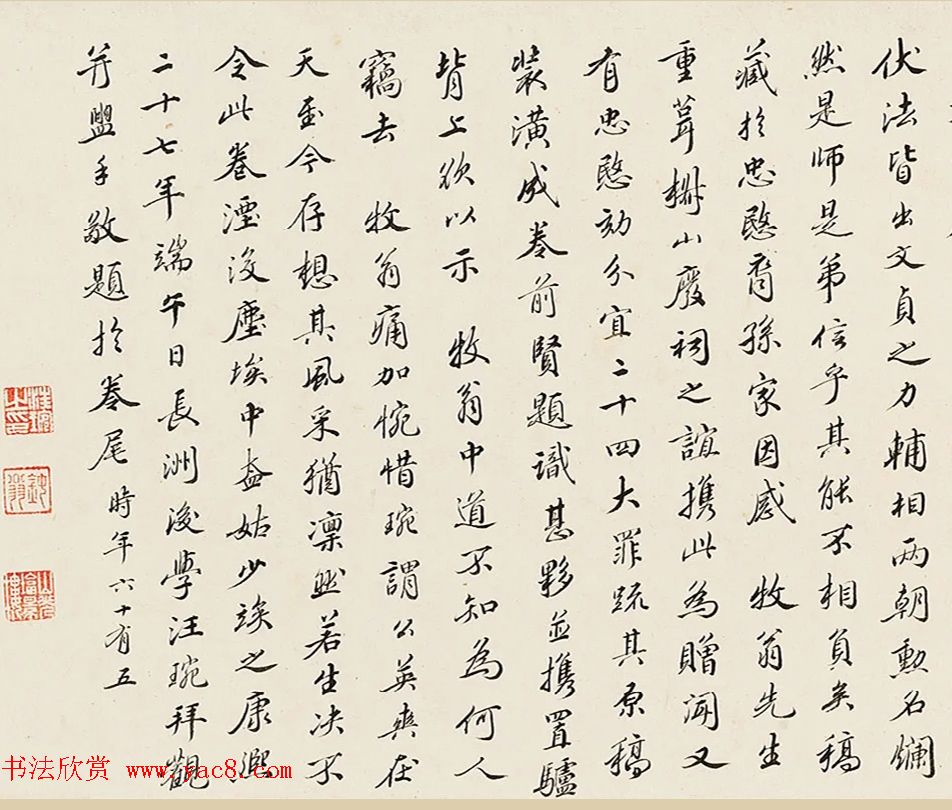 伏法皆出文貞之力輔相两朝勲名爛
然是师是弟信乎其能不相負矣稿
藏扵忠愍裔孫家因感 牧翁先生
重葺椒山廢祠之誼携此為贈聞又
有忠愍劾分宜二十四大罪疏其原稿
装潢成卷前賢題識甚夥並携置驢
背上欲以示 牧翁中道不知為何人
竊去 牧翁痛加惋惜琬謂公英爽在
天至今存想其風采猶凛然若生决不
令此卷湮没塵埃中盍姑少竢之康熙
二十七年端午日長洲後學汪琬拜觀
并盥手敬題扵卷尾時年六十有五
汪琬之印
鈍翁
书法欣赏 www.yac8.com